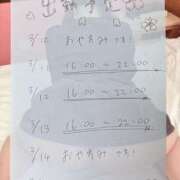 ☆ 出勤予定
3/12 おやすみです!
3/11 16:00 〜 22:00
3/12 16:00 〜 22:00
3/13 16:00 〜 22:00
3/14 おやすみです!